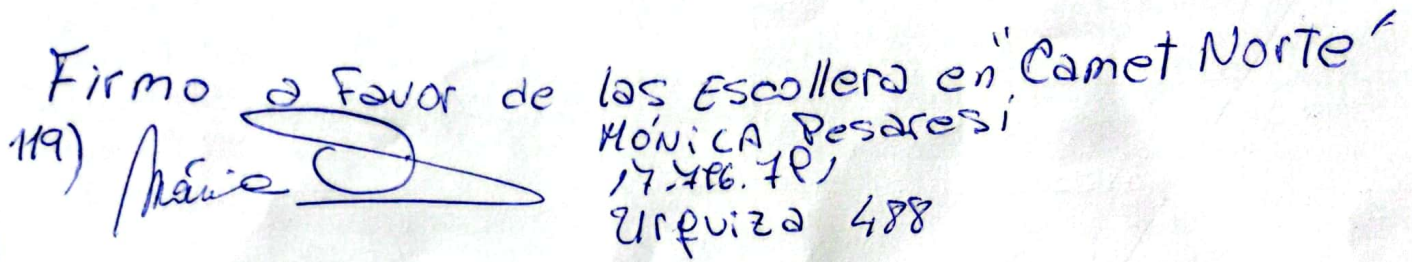 Firmo a Favor de las Escollera en "Camet Norte"
119) Mónica MÓNiCA Pesaresi
Urquiza 488